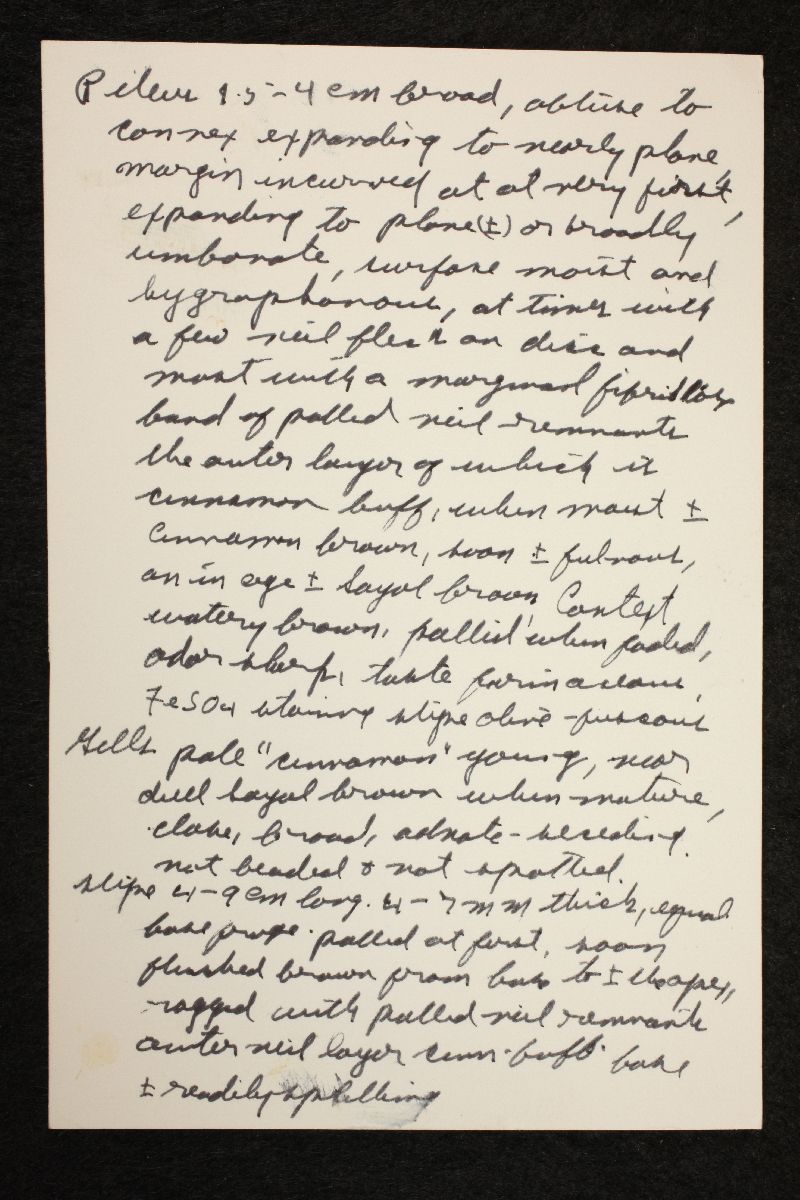 Pileus 1.5-4 cm broad, obtuse to
convex expanding to nearly plane,
margin incurved at at very first,
expanding to plane (±) or broadly
umbonate, surface moist and
hygrophanous, at times with
a few veil flecks on disc and
most with a marginal fibrillose
band of pallid veil remnants
the outer layer of which is
cinnamon buff, when moist ±
Cinnamon brown, soon ± fulvous,
an in age ± sayal brown, Context
watery brown, pallid when faded,
odor sharp, taste farinaceous,
FeSO4 staining stipe olive-fuscous
Gills pale "cinnamon" young, near
dull sayal brown when mature,
close, broad, adnate-seceding.
not beaded & not spotted.
Stipe 4-9 cm long. 4-7 mm thick, equal
base. pallid at first, soon
flushed brown from base to ± apex,
ragged with pallid veil remnants
outer veil layer cinn-buff. base
± readily splitting